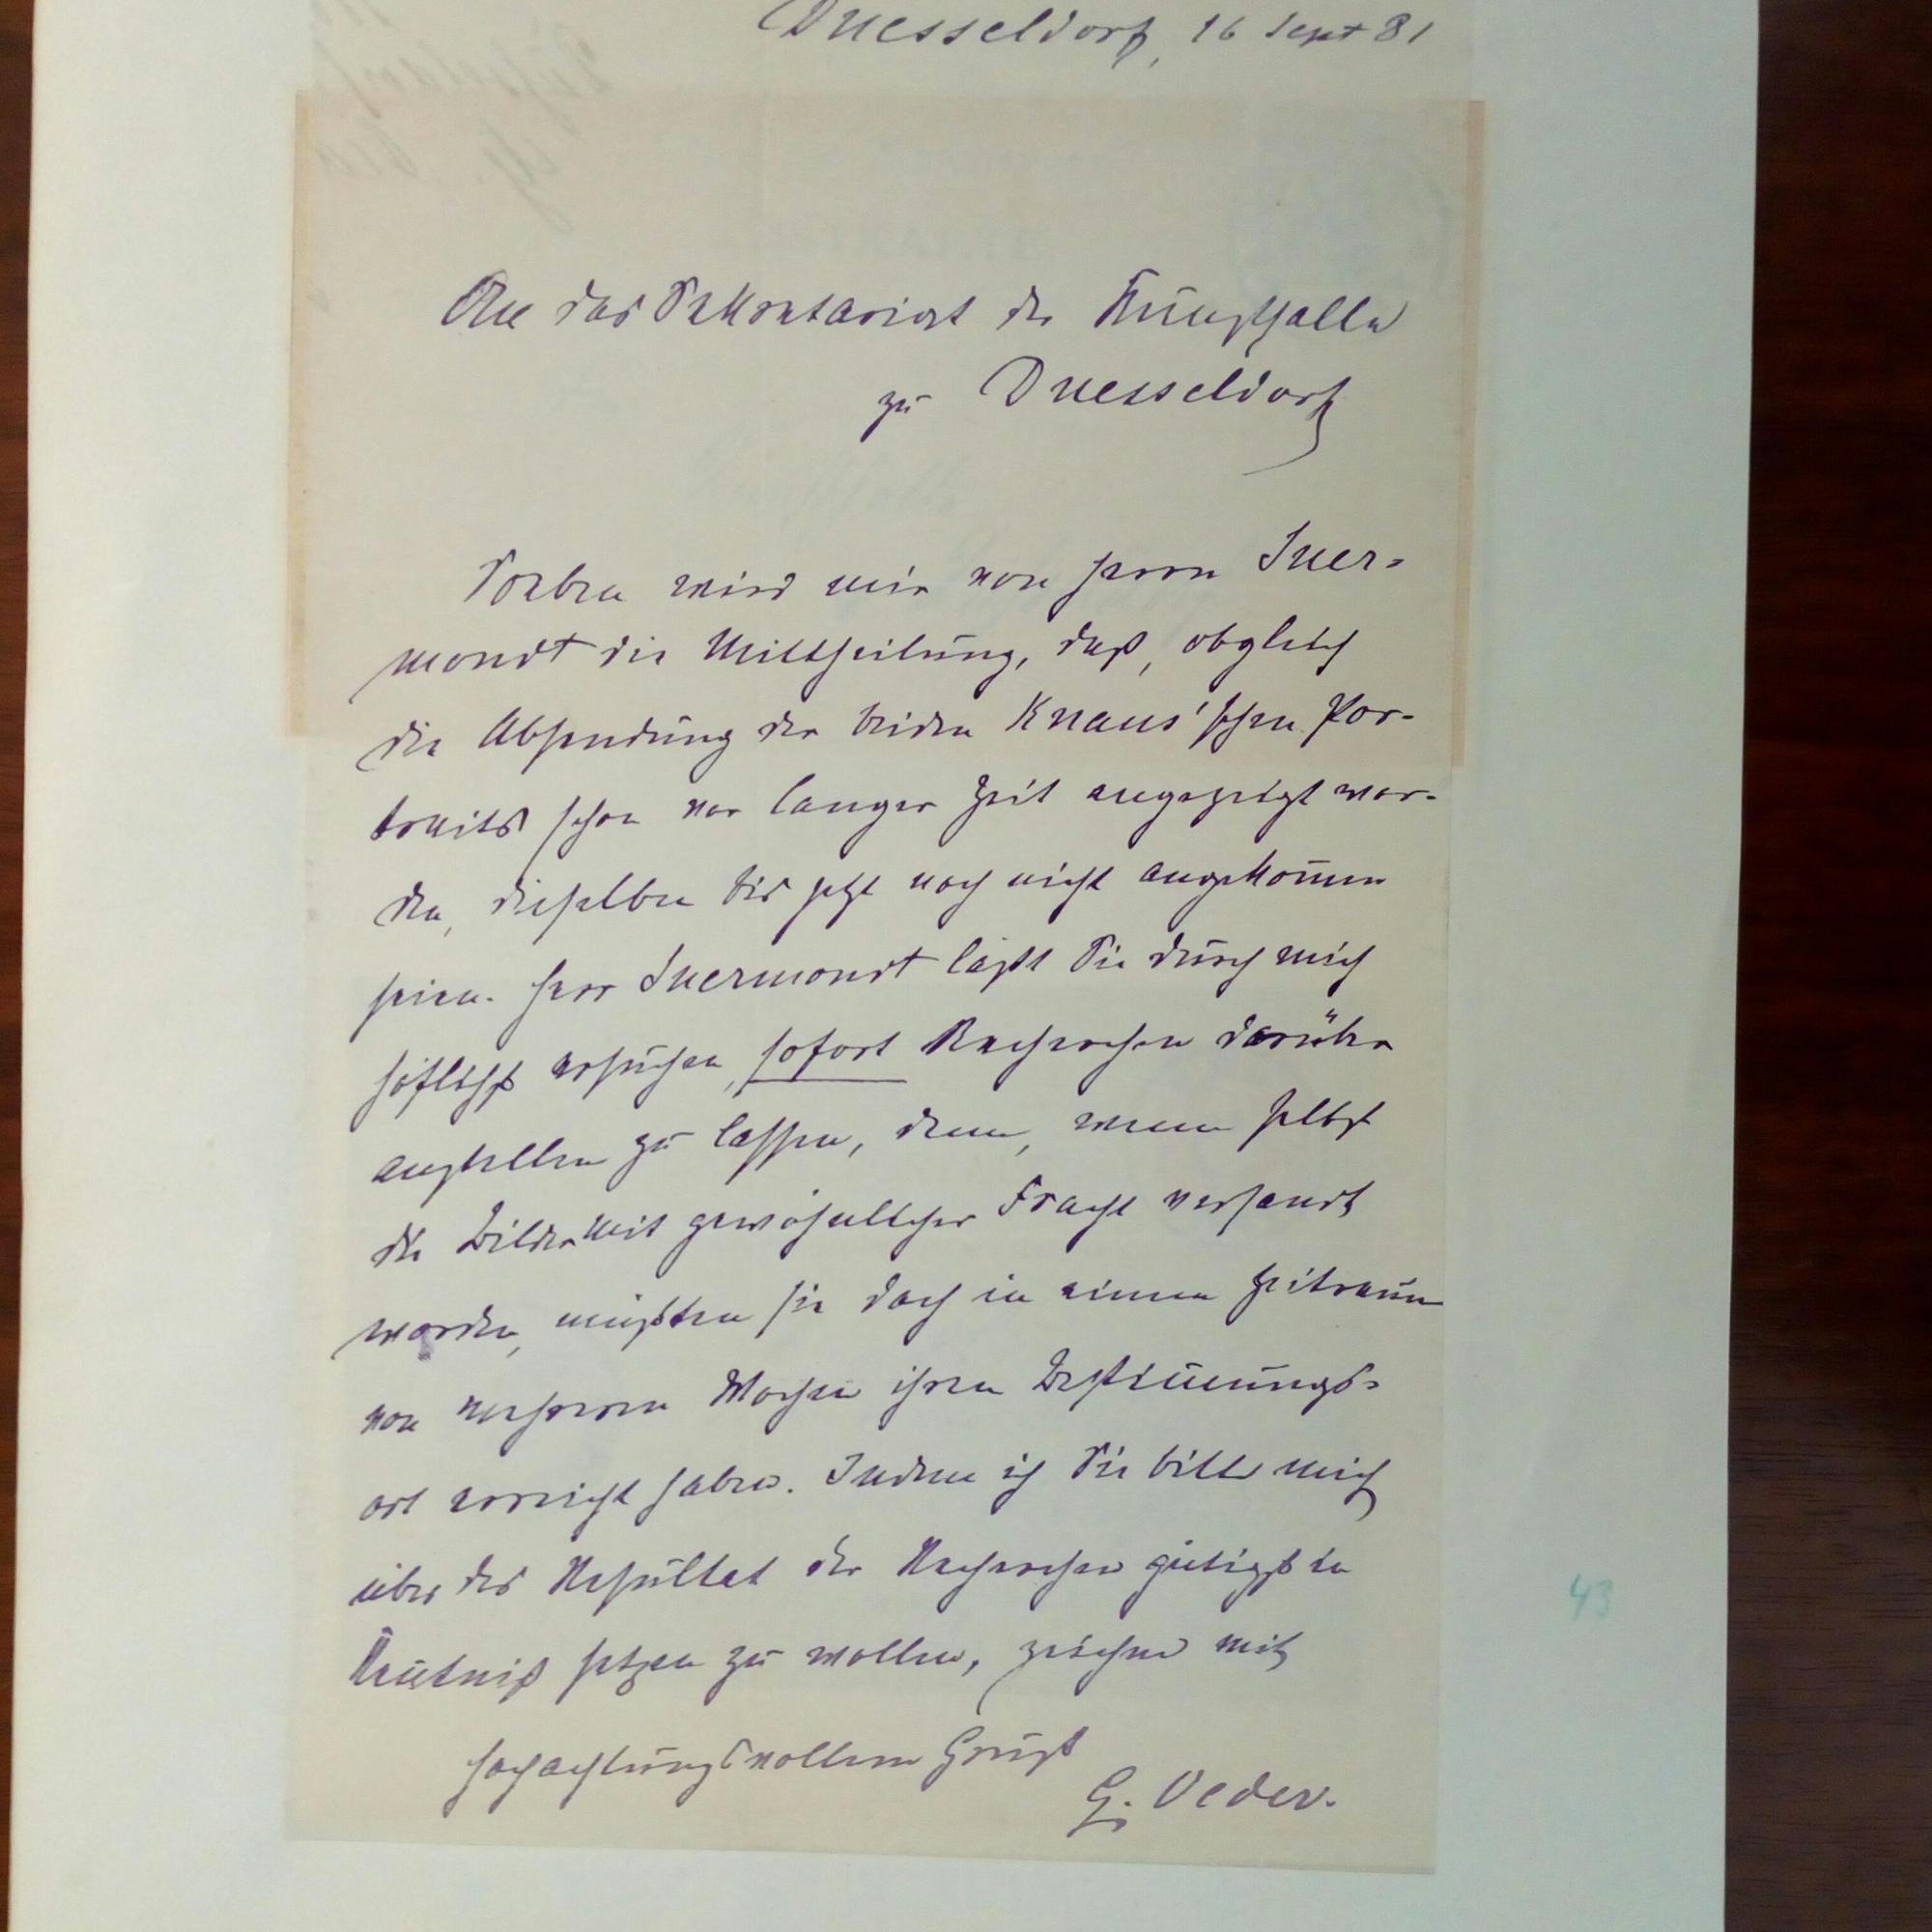 Duesseldorf, 16 Sept 81
An das Sekretariat der Kunsthalle
zu Duesseldorf
Soeben wird mir von Herrn Suer-
mondt die Mittheilung, daß, obgleich
die Absendung der beiden Knaus'schen Por-
traits schon vor langer Zeit angezeigt wor-
den, dieselben bis jetzt noch nicht angekom̅en
seien. Herr Suermondt läßt Sie durch mich
höflichst ersuchen, sofort Recherchen darüber
anstellen zu lassen, denn, wenn selbst
die Bilder mit gewöhnlicher Fracht versandt
worden, müßten sie doch in einem Zeitraum
von mehreren Wochen ihren Bestim̅ungs-
ort erreicht haben. Indem ich Sie bitte mich
über das Resultat der Recherchen gütigst in
Ken̅tniß setzen zu wollen, zeichne mit
hochachtungsvollem Gruße
G. Oeder.
43